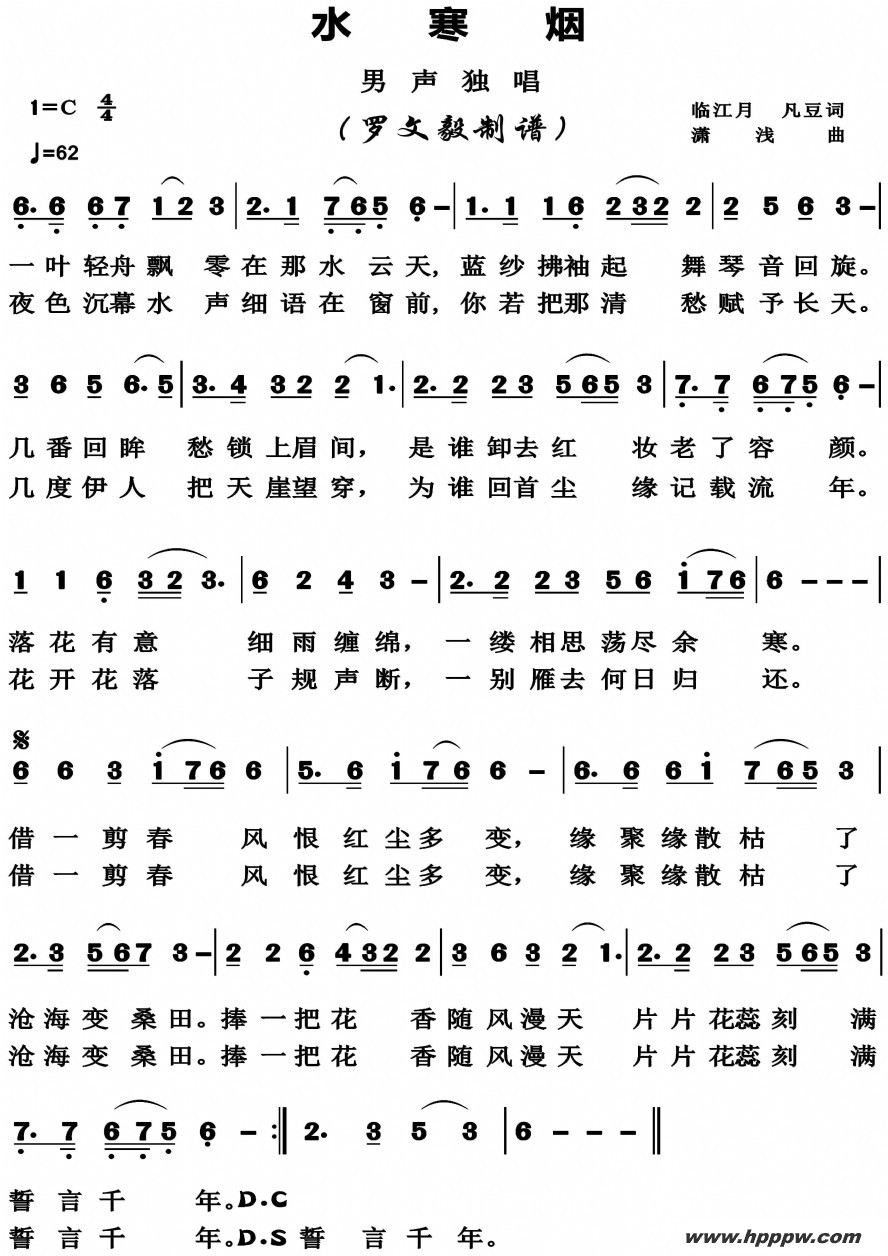 水 寒 烟
男 声 独 唱
1=C 4/4
(罗文毅制谱)
临江月 凡豆词
潇 浅 曲
♩=62
6. 6 6 7 1 2 3 | 2. 1 7 6 5 6 - | 1. 1 1 6 2 3 2 2 | 2 5 6 3 - |
一叶轻舟飘 零在那水 云天,蓝纱拂袖起 舞琴音回旋。
夜色沉幕水 声细语在 窗前,你若把那清 愁赋予长天。
3 6 5 6. 5 | 3. 4 3 2 2 1. | 2. 2 2 3 5 6 5 3 | 7. 7 6 7 5 6 - |
几番回眸 愁锁上眉间, 是谁卸去红 妆老了容 颜。
几度伊人 把天崖望穿, 为谁回首尘 缘记载流 年。
1 1 6 3 2 3. | 6 2 4 3 - | 2. 2 2 3 5 6 i 7 6 | 6 - - - |
落花有意 细雨缠绵, 一缕相思荡尽余 寒。
花开花落 子规声断, 一别雁去何日归 还。
𝄋
6 6 3 i 7 6 6 | 5. 6 i 7 6 6 - | 6. 6 6 i 7 6 5 3 |
借一剪春 风恨红尘多 变, 缘聚缘散枯 了
借一剪春 风恨红尘多 变, 缘聚缘散枯 了
2. 3 5 6 7 3 - | 2 2 6 4 3 2 2 | 3 6 3 2 1. | 2. 2 2 3 5 6 5 3 |
沧海变 桑田。捧一把花 香随风漫天 片片花蕊刻 满
沧海变 桑田。捧一把花 香随风漫天 片片花蕊刻 满
7. 7 6 7 5 6 - :‖ 2. 3 5 3 | 6 - - - ‖
誓言千 年。D.C
誓言千 年。D.S 誓 言千年。
www.hpppw.com